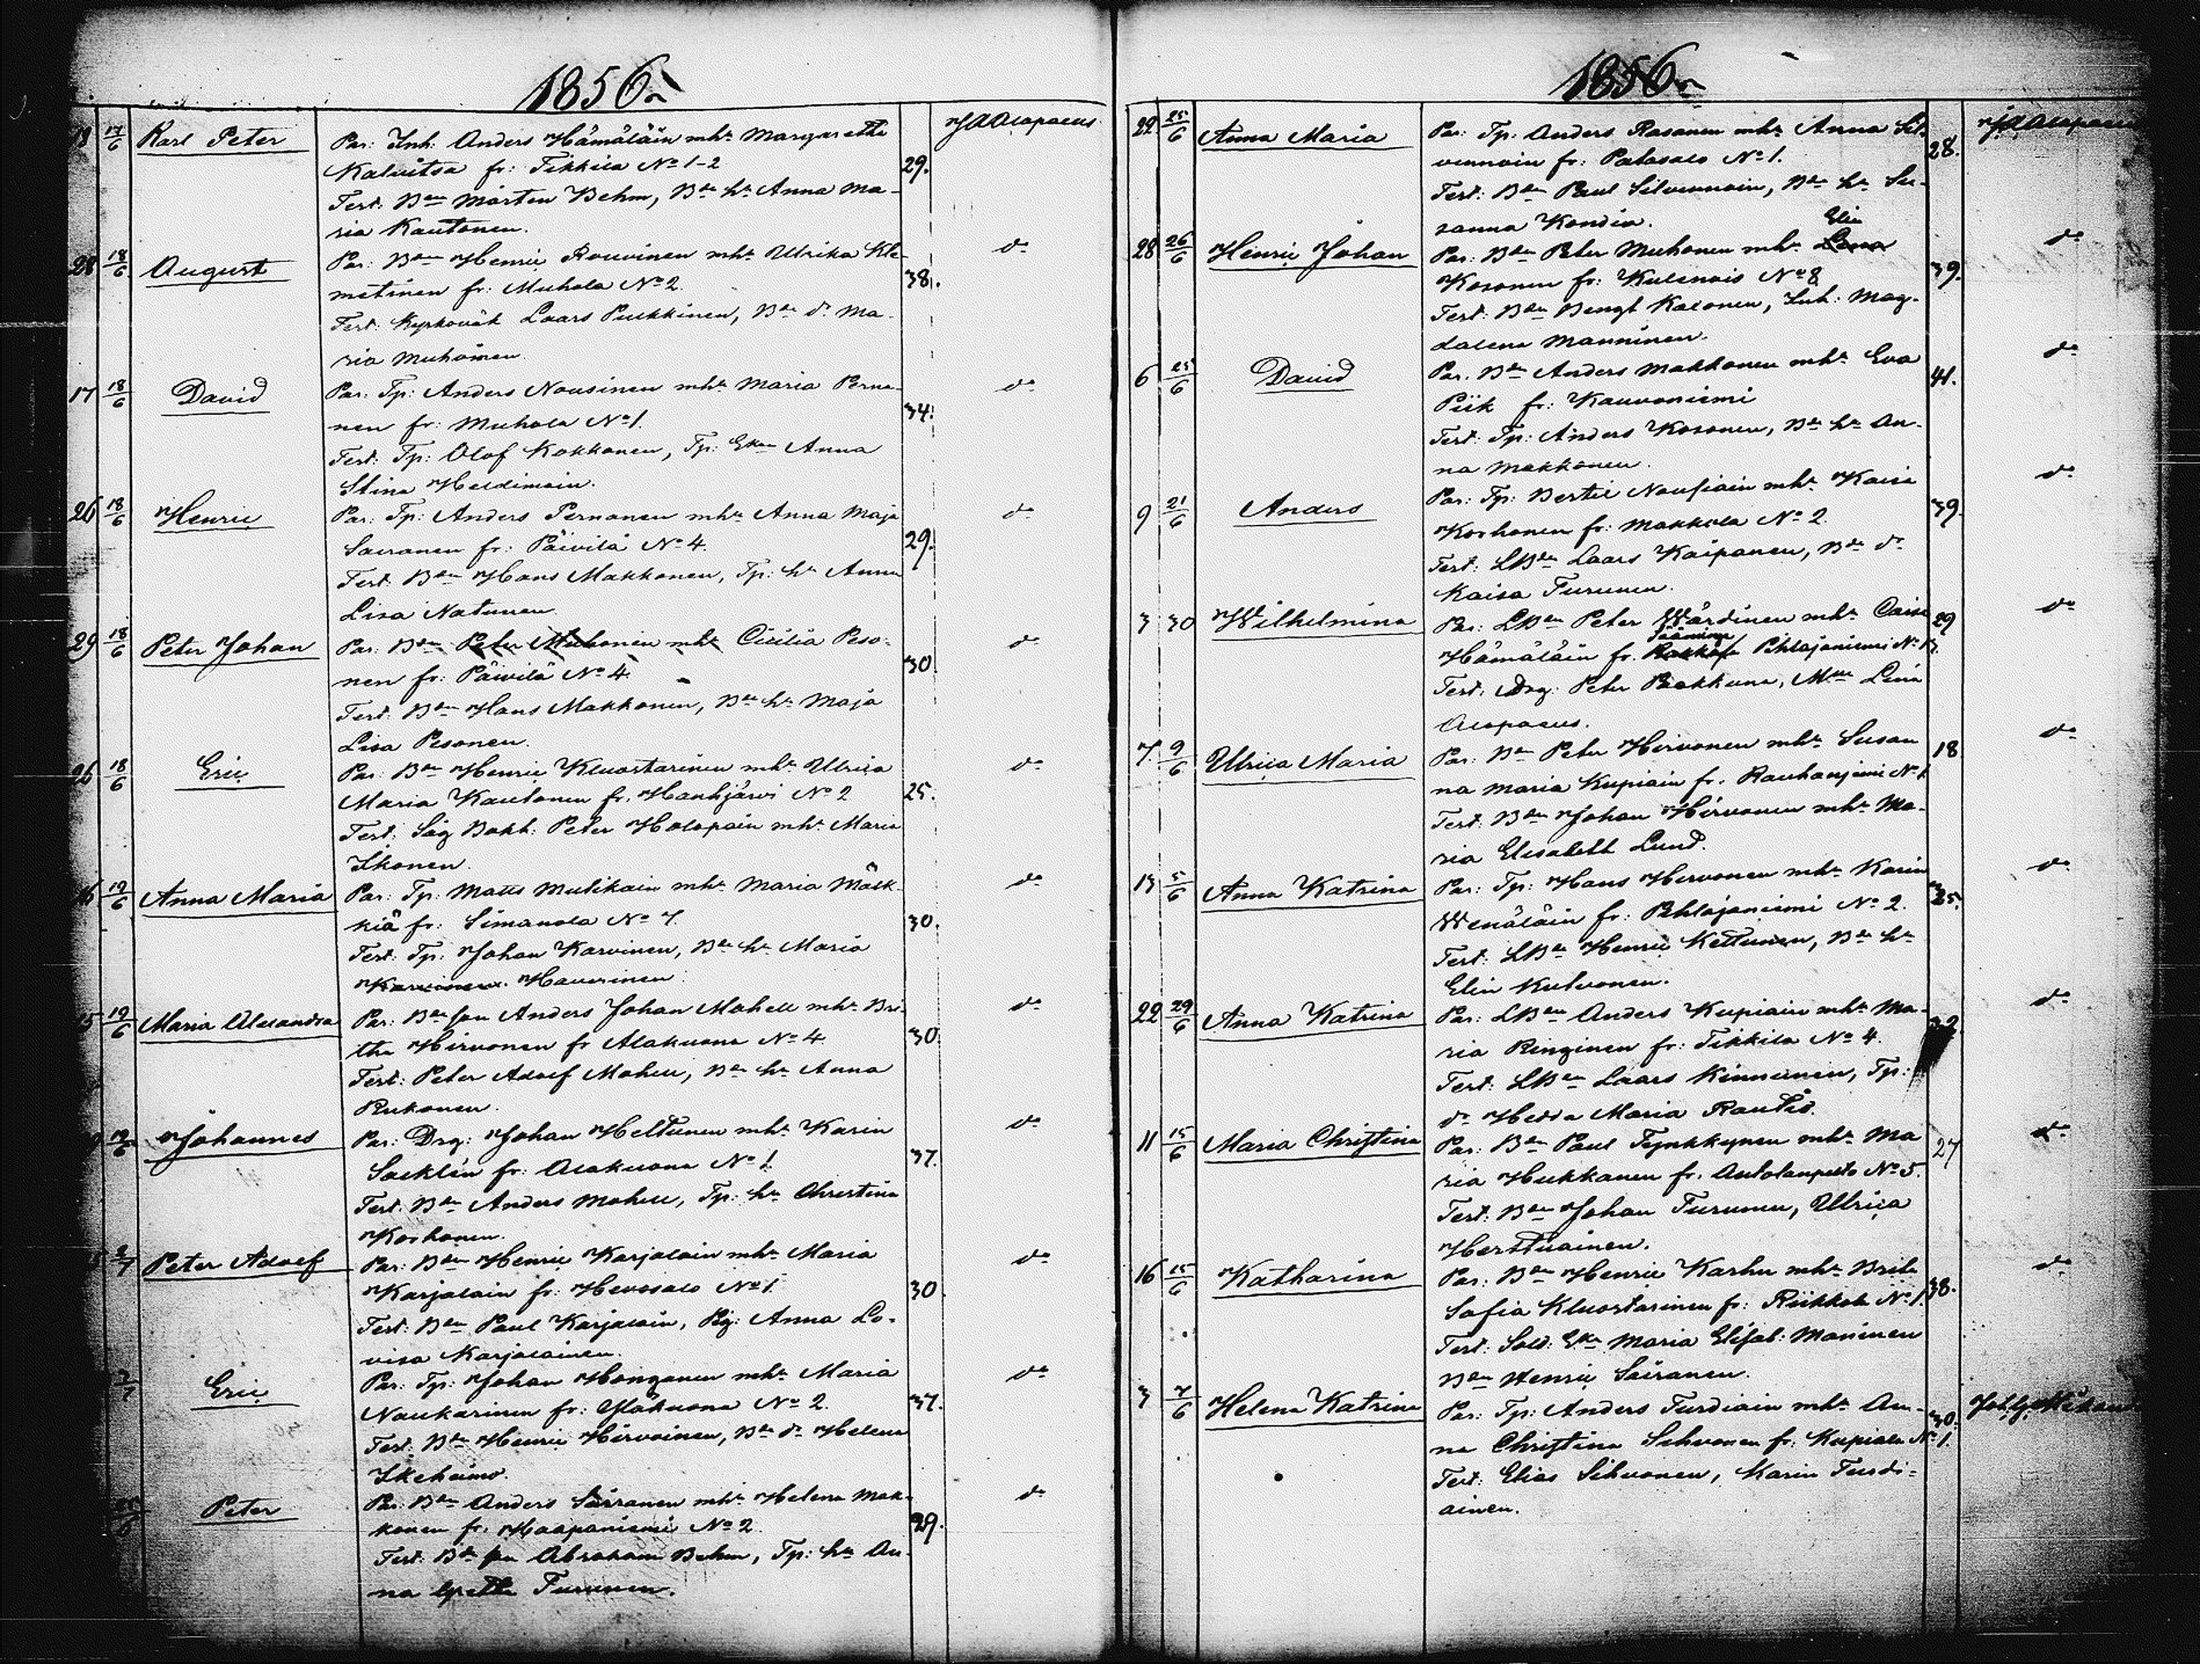 1856
18 17/6 Karl Peter Par: Inh: Anders Hämäläin mhr Margaretha J A Alopaeus
Kaluitsa fr: Tikkila No 1-2 29.
Test: Bdn Mårten Behm, Bde hr Anna Ma-
ria Kautonen.
28 18/6 August Par: Bdn Henric Rouvinen mhr Ulrika Kle- do
metinen fr: Muhola No 2. 38.
Test: Laars Pulkkinen, Bde dr Ma-
ria Muhoinen
17 18/6 David Par: Tp: Anders Nousinen mhr Maria Perna- do
nen fr: Muhola No 1. 34.
Test: Tp: Olof Kokkonen, Tp: Ekan Anna
Stina
26 18/6 Henric Par: Tp: Anders Pernanen mhr Anna Maja do
Sairanen fr: Päivilä No 4. 29.
Test: Bdn Hans Makkonen, Tp: hr Anna
Lisa Natunen
29 18/6 Peter Johan Par: Bdn Peter Muhonen mhr Cicilia Peso- do
nen fr: Päivilä No 4. 30.
Test: Bdn Hans Makkonen, Bde hr Maja
Lisa Pesonen.
26 18/6 Eric Par: Bdn Henric Kluostarinen mhr Ulrica do
Maria Kautonen fr. Hanhijärvi No 2 25.
Test: Såg Bokh: Peter Holopain mhr Maria
Ikonen.
16 19/6 Anna Maria Par: Tp: Matts Mutikain mhr Maria Mälk- do
kiä fr: Simanala No 7. 30.
Test: Tp: Johan Karvinen, Bde hr Maria
Karvinen. Haverinen
15 19/6 Maria Alexandra Par: Bde son Anders Johan Mahell mhr Bri- do
tha Hirvonen fr Alakuona No 4 30.
Test: Peter Adolf Mahell, Bde hr Anna
Rukonen.
19/6 Johannes Par: Drg: Johan Heltunen mhr Karin do
Säcklén fr: Alakuona No 1. 37.
Test: Bdn Anders Mahell, Tp: hr Christina
Korhonen.
2/7 Peter Adolf Par: Bdn Henric Karjalain mhr Maria do
Karjalain fr: Hevossalo No 1. 30
Test: Bdn Paul Karjalain, Pig: Anna Lo-
visa Karjalainen.
2/7 Eric Par: Tp: Johan Honganen mhr Maria do
Naukarinen fr: Yläkuona No 2. 37.
Test: Bdn Henric Hirvoinen, Bde dr Helena
Ikeheimo.
Peter Par: Bdn Anders Säiranen mhr Helena Mak- do
konen fr: Haapaniemi No 2. 29.
Test: Bde son Abraham Behm, Tp: hr An-
na Turunen.
1856
22 25/6 Anna Maria Par: Tp: Anders Rasanen mhr Anna Sil- J A Alopaeus
vennoin fr: Patasalo No 1. 28.
Test: Bdn Paul Silvennoin, Bde hr Su-
sanna Kondia.
Elin
28 26/6 Henric Johan Par: Bdn Peter Muhonen mhr Lena do
Kosonen fr: Kulennois No 8 39.
Test: Bdn Bengt Kaconen, Inh: Mag-
dalena Manninen.
6 25/6 David Par. Bdn Anders Makkonen mhr Eva do
Piik fr: Kauvoniemi 41.
Test: Tp: Anders Kosonen, Bde hr An-
na Makkonen.
9 21/6 Anders Par: Tp: Bertil Nousiain mhr Kaisa do
Korhonen fr: Makkola No 2. 39.
Test: LBdn Laars Kaipanen, Bde dr
Kaisa Turunen.
3 30 Wilhelmina Par: LBdn Peter Wärdinen mhr Caisa 29 do
Sääminge
Hämäläin fr. Pihlajaniemi No 13.
Test: Drg: Peter Packkana, Mme Lena
Alopaeus.
7. 9/6 Ulrica Maria Par: Bdn Peter Hirvonen mhr Susan 18 do
na Maria Kupiain fr. Rauhaniemi No 1
Test: Bdn Johan Hirvonen mhr Ma-
ria Elisabeth Lund.
13 5/6 Anna Katrina Par: Tp: Hans Hirvonen mhr Karin do
Wenäläin fr: Pihlajaniemi No 2. 25.
Test: LBdn Henric Kettunen, Bde hr
Elin Kulvonen.
22 29/6 Anna Katrina Par: LBdn Anders Kupiain mhr Ma- do
ria Ringinen fr: Tikkila No 4. 32.
Test: LBdn Laars Kinnunen, Tp:
dr Hedda Maria Rautio.
11 15/6 Maria Christina Par: Bdn Paul Tynkkynen mhr Ma 27 do
ria Hukkanen fr. Autolanpelto No 5.
Test: Bdn Johan Turunen, Ulrica
Herttuainen.
16 15/6 Katharina Par: Bdn Henric Karhu mhr Brita do
Sofia Kluostarinen fr: Riikkola No 1. 38.
Test: Sold: Eka Maria Elisab: Maninen
Bdn Henric Säiranen.
3 7/6 Helena Katrina Par: Tp: Anders Turdiain mhr An- 30.
na Christina Sihvonen fr: Kupiala No 1.
Test: Elias Sihvonen, Karin Turdi-
ainen.